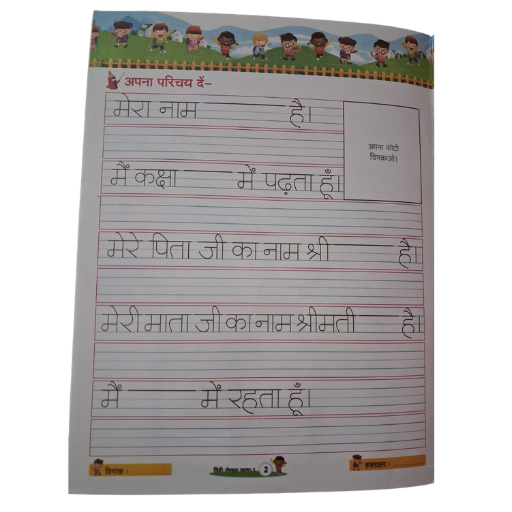 अपना परिचय दें-
मेरा नाम ______ है।
अपना फोटो
चिपकाओ।
मैं कक्षा ______ में पढ़ता हूँ।
मेरे पिता जी का नाम श्री ______ है।
मेरी माता जी का नाम श्रीमती ______ है।
मैं ______ में रहता हूँ।
दिनांक :
हिंदी 2
हस्ताक्षर :